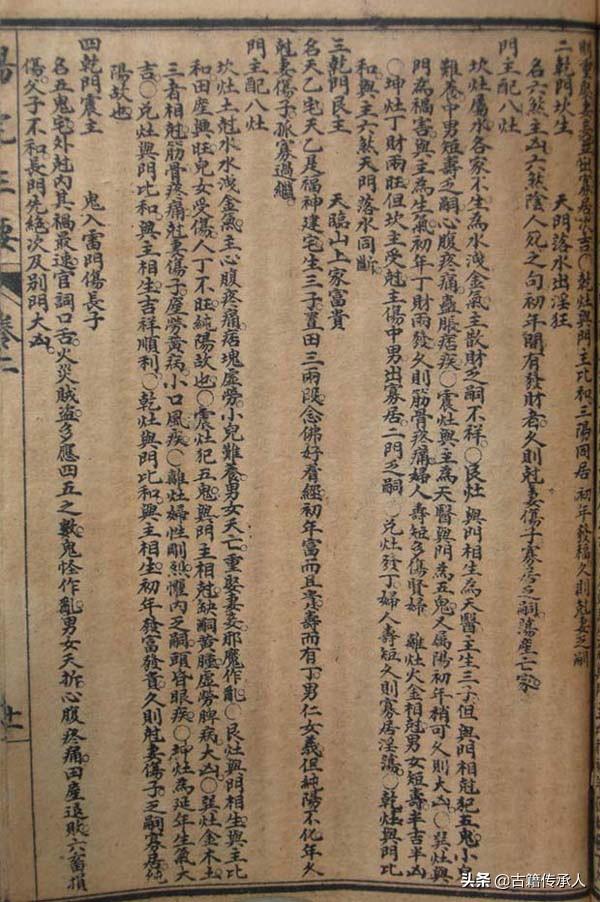 則重娶妻妾並出寡居次吉〇乾灶與門主比和三陽同居 初年發福久則尅妻乏嗣
二乾門坎主 天門落水出淫狂
名六煞主凶六煞陰人死之句初年間有發財者久則尅妻傷子寡居乏嗣蕩產亡家
門主配八灶
坎灶屬水各家不生為水洩金氣主散財乏嗣不祥〇艮灶與門相生為天醫主生三子但與門相尅犯五鬼小兒
難養中男短壽乏嗣心腹疼痛蠱脹痞疾〇震灶與主為天醫與門為五鬼又屬陽初年稍可久則大凶〇巽灶與
門為禍害與主為生氣初年丁財兩發久則筋骨疼痛婦人壽短多傷賢婦 離灶火金相尅男女短壽半吉半凶
〇坤灶丁財兩旺但坎主受尅主傷中男出寡居二門乏嗣〇兌灶發丁婦人壽短久則寡居淫蕩〇乾灶與門
和與主六煞天門落水同斷
三乾門艮主 天臨山上家富貴
名天乙宅天乙是福神建宅生三子置田三兩段念佛好看經初年富而且貴壽而有丁男仁女義但純陽不化年久
尅妻傷子孤寡過繼
門主配八灶
坎灶土尅水水洩金氣主心腹疼痛痞塊虛勞小兒難養男女夭亡重娶妻妾邪魔作亂〇艮灶與門相生與主比
和田產興旺兒女受傷人丁不旺純陽故也〇震灶犯五鬼與門主相尅缺嗣黃腫虛勞脾病大凶〇巽灶金木土
三者相尅筋骨疼痛尅妻傷子產勞黃病小口風疾〇離灶婦性剛烈懼內乏嗣頭昏眼疾〇坤灶為延年生氣大
吉〇兌灶與門比和與主相生吉祥順利〇乾灶與門比和與主相生初年發富發貴久則尅妻傷子乏嗣寡居純
陽故也
四乾門震主 鬼入雷門傷長子
名五鬼宅外尅內其禍最速官詞口舌火災賊盜多應四五之數鬼怪作亂男女夭折心腹疼痛田產退敗六畜損
傷父子不和長門先絕次及別門大凶
陽宅三要 卷二 十一
頭条 @古籍传承人